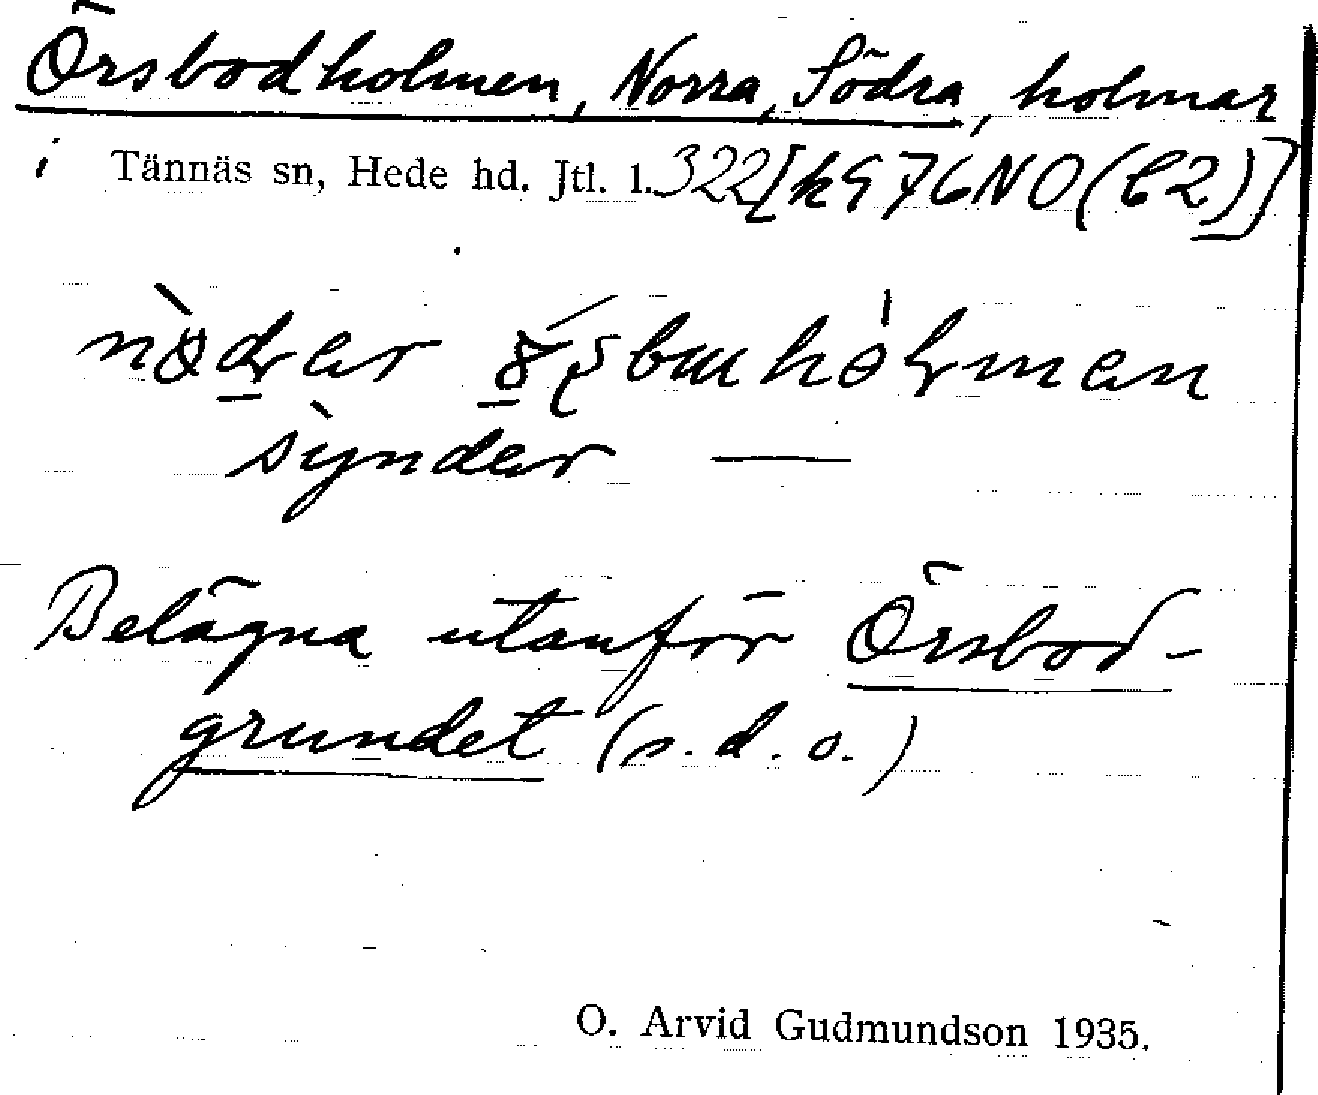 Örsbodholmen, Norra, Södra, holmar
i Tännäs sn, Hede hd. Jtl. l. 322 [k976NO(C2)]
synder —
Belägna utanför Örsbod-
grundet (s.d.o.)
O. Arvid Gudmundson 1935.